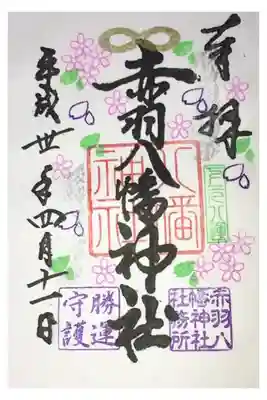 奉拝
赤羽八幡神社
平成卅一年四月十一日
八幡神社
勝運
守護
赤羽八
幡神社
社務所